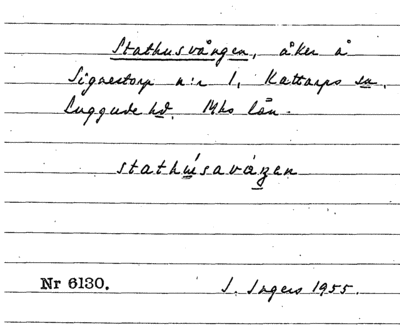 Stathusvången, åker å
Signestorp n:r 1, Kattarps sn,
Luggude hd. Mhs län.
stathúsavåŋen
Nr 6130.
I. Ingers 1955.